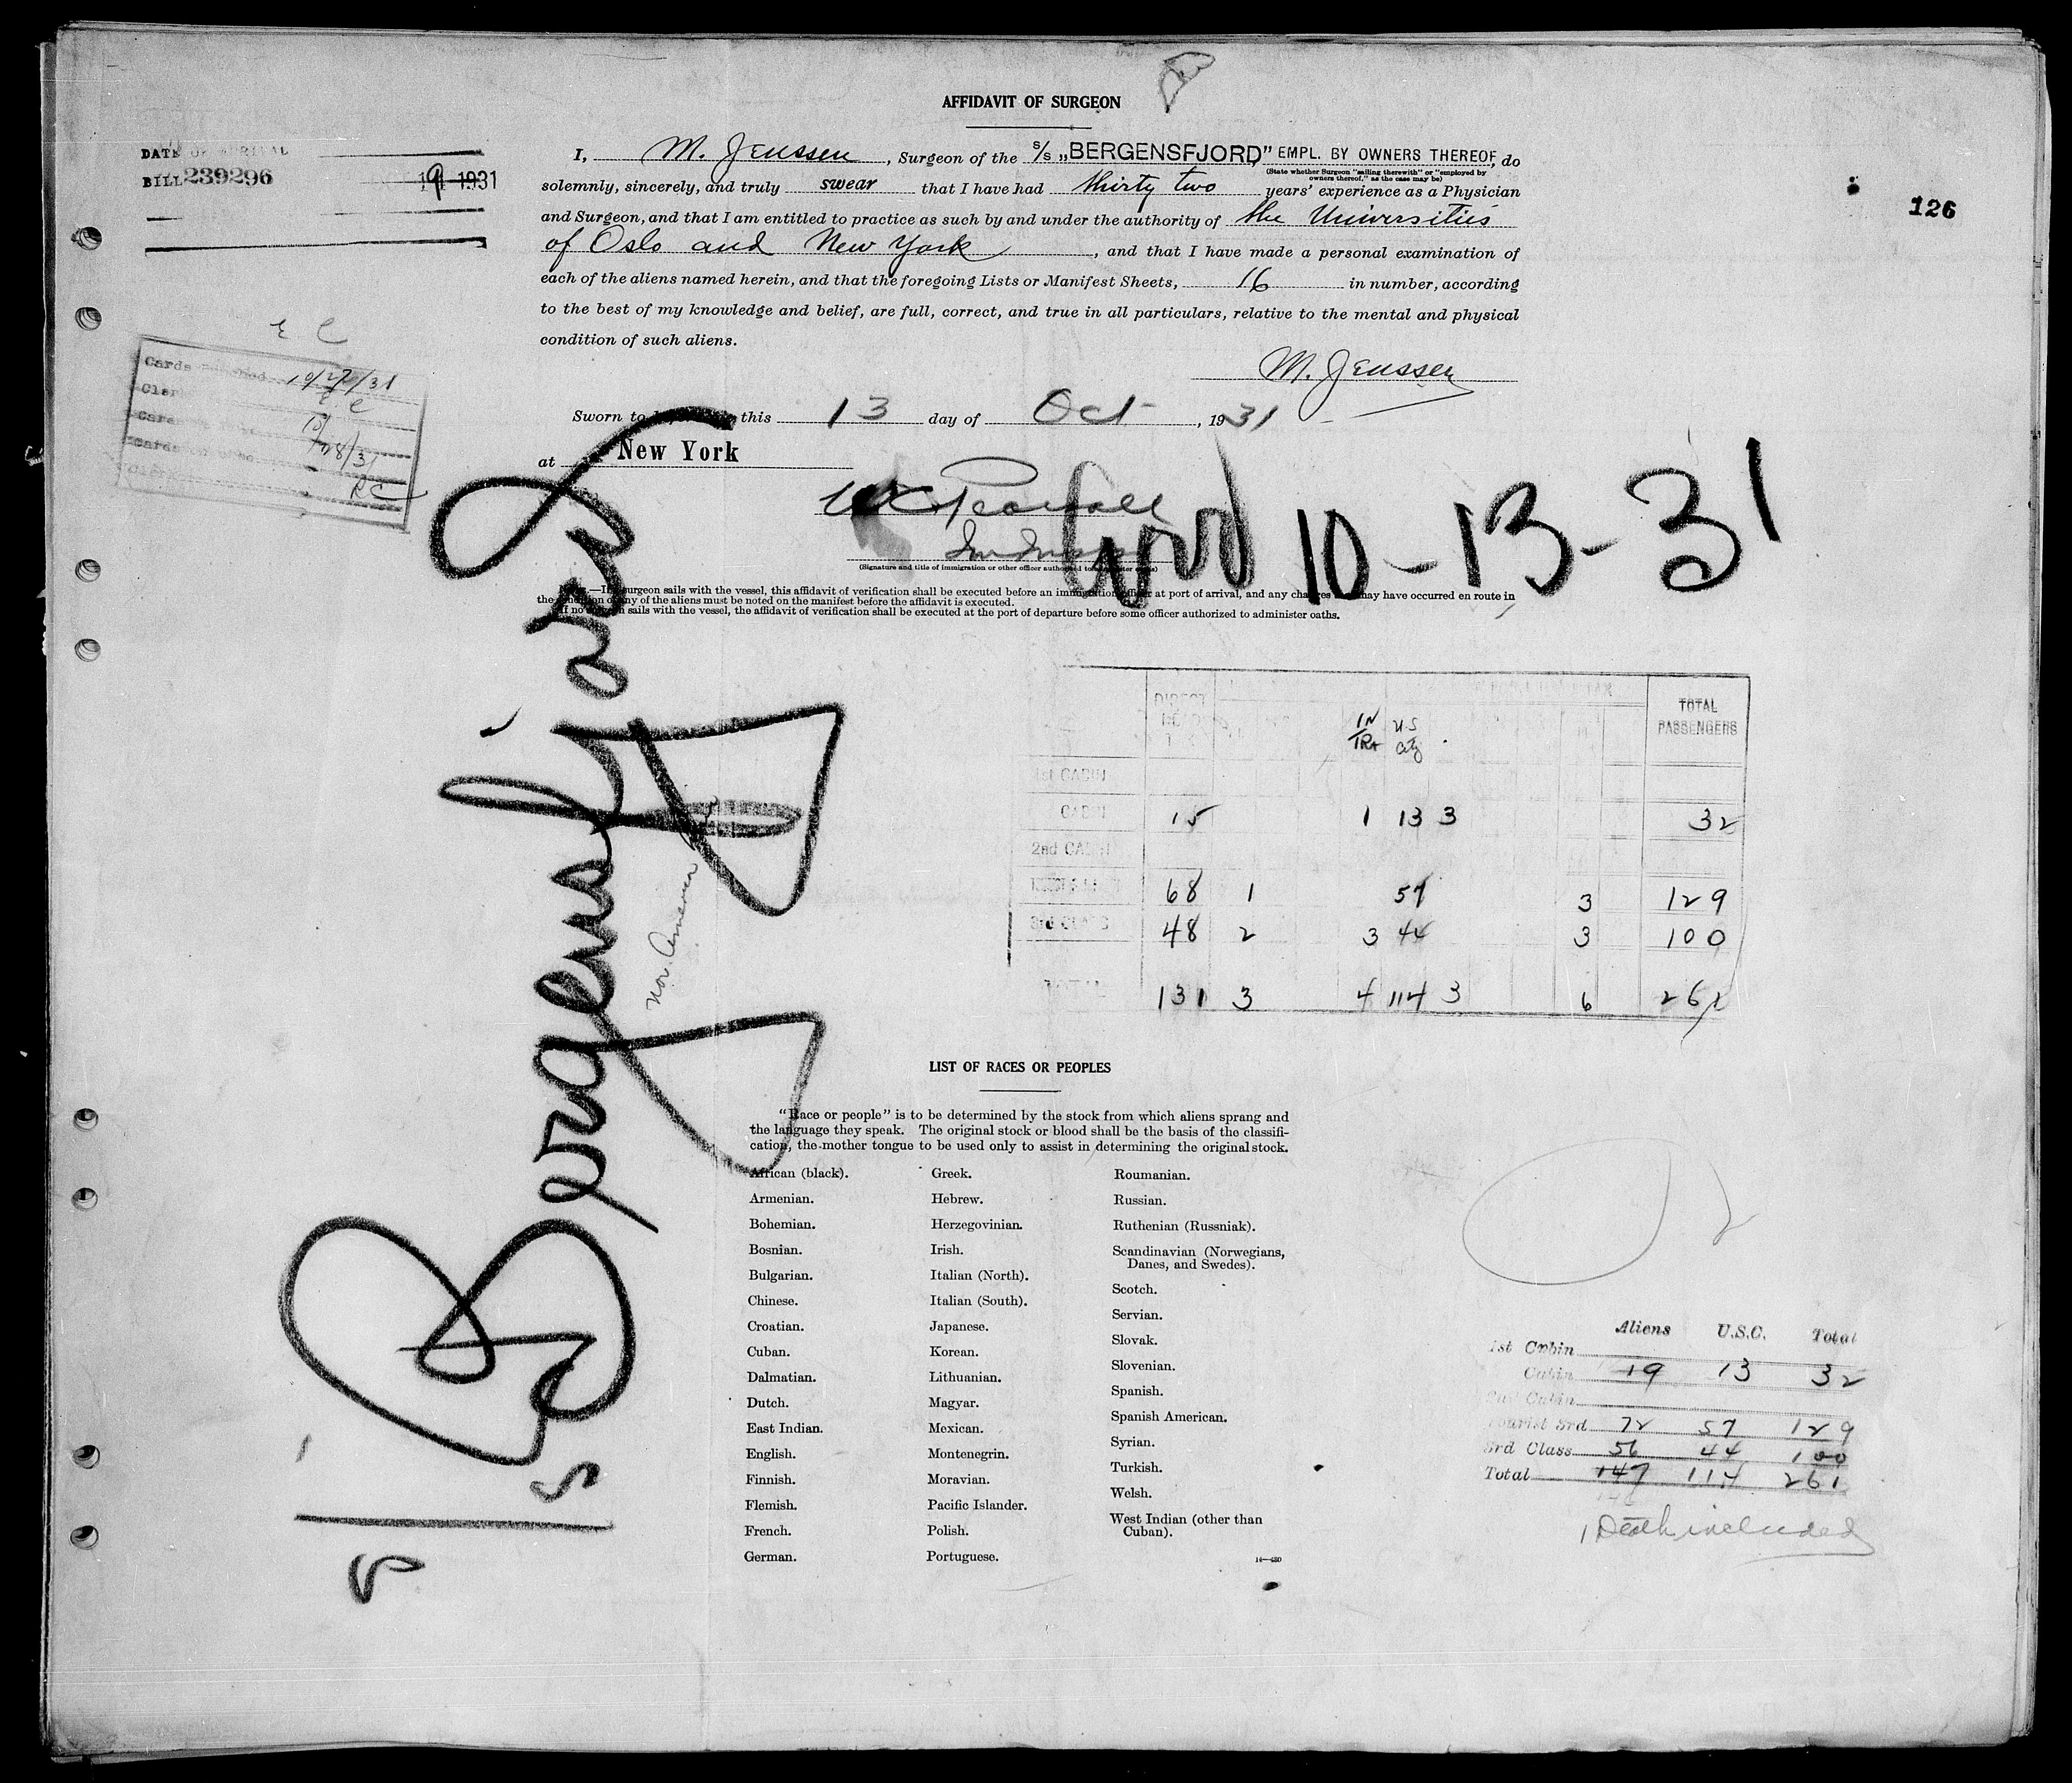 AFFIDAVIT OF SURGEON
I, M. Jenssen, Surgeon of the S/S „BERGENSFJORD" EMPL. BY OWNERS THEREOF, do
(State whether Surgeon "sailing therewith" or "employed by
owners thereof," as the case may be)
solemnly, sincerely, and truly swear that I have had thirty two years' experience as a Physician
and Surgeon, and that I am entitled to practice as such by and under the authority of the Universities
of Oslo and New York, and that I have made a personal examination of
each of the aliens named herein, and that the foregoing Lists or Manifest Sheets, 16 in number, according
to the best of my knowledge and belief, are full, correct, and true in all particulars, relative to the mental and physical
condition of such aliens.
M. Jenssen
Sworn to this 13 day of Oct, 1931
at New York
(Signature and title of immigration or other officer authorized to administer oaths)
10-13-31
NOTE.—If surgeon sails with the vessel, this affidavit of verification shall be executed before an immigration officer at port of arrival, and any changes may have occurred en route in
the condition of any of the aliens must be noted on the manifest before the affidavit is executed.
If no surgeon sails with the vessel, the affidavit of verification shall be executed at the port of departure before some officer authorized to administer oaths.
DATE OF ARRIVAL
BILL 239296 19 1931
126
E C
Cards 10/27/31
Clerk E C
10/28/31
RC
SS Bergensfjord
Nor. American
DIRECT
IN TRA
U.S. Ctz
TOTAL PASSENGERS
1st CABIN
CABIN 15 1 13 3 32
2nd CABIN
68 1 57 3 129
3rd CLASS 48 2 3 44 3 100
TOTAL 131 3 4 114 3 6 262
LIST OF RACES OR PEOPLES
"Race or people" is to be determined by the stock from which aliens sprang and
the language they speak. The original stock or blood shall be the basis of the classifi-
cation, the mother tongue to be used only to assist in determining the original stock.
African (black).
Armenian.
Bohemian.
Bosnian.
Bulgarian.
Chinese.
Croatian.
Cuban.
Dalmatian.
Dutch.
East Indian.
English.
Finnish.
Flemish.
French.
German.
Greek.
Hebrew.
Herzegovinian.
Irish.
Italian (North).
Italian (South).
Japanese.
Korean.
Lithuanian.
Magyar.
Mexican.
Montenegrin.
Moravian.
Pacific Islander.
Polish.
Portuguese.
Roumanian.
Russian.
Ruthenian (Russniak).
Scandinavian (Norwegians,
Danes, and Swedes).
Scotch.
Servian.
Slovak.
Slovenian.
Spanish.
Spanish American.
Syrian.
Turkish.
Welsh.
West Indian (other than
Cuban).
Aliens U.S.C. Total
1st Cabin
Cabin 19 13 32
2nd Cabin
Tourist 3rd 72 57 129
3rd Class 56 44 100
Total 147 114 261
1 Death included